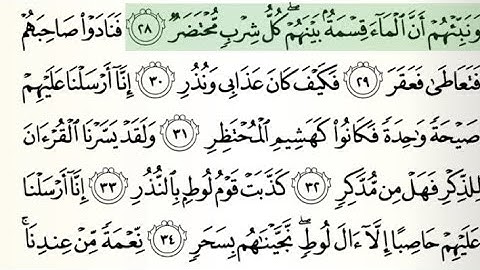 وَنَبِّئْهُمْ أَنَّ ٱلْمَآءَ قِسْمَةٌۢ بَيْنَهُمْ ۖ كُلُّ شِرْبٍ مُّحْتَضَرٌ ٢٨ فَنَادَوْا۟ صَاحِبَهُمْ
فَتَعَاطَىٰ فَعَقَرَ ٢٩ فَكَيْفَ كَانَ عَذَابِى وَنُذُرِ ٣٠ إِنَّآ أَرْسَلْنَا عَلَيْهِمْ
صَيْحَةً وَٰحِدَةً فَكَانُوا۟ كَهَشِيمِ ٱلْمُحْتَظِرِ ٣١ وَلَقَدْ يَسَّرْنَا ٱلْقُرْءَانَ
لِلذِّكْرِ فَهَلْ مِن مُّدَّكِرٍ ٣٢ كَذَّبَتْ قَوْمُ لُوطٍۭ بِٱلنُّذُرِ ٣٣ إِنَّآ أَرْسَلْنَا
عَلَيْهِمْ حَاصِبًا إِلَّآ ءَالَ لُوطٍ ۖ نَّجَّيْنَـٰهُم بِسَحَرٍ ٣٤ نِّعْمَةً مِّنْ عِندِنَا ۚ